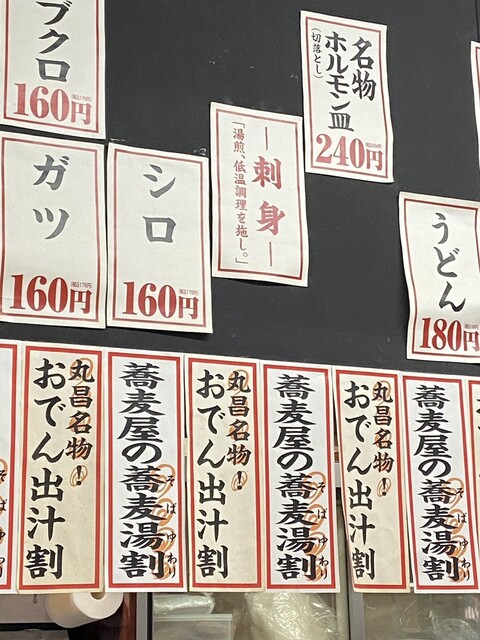 ブクロ
160円
名物
ホルモン皿
(切落とし)
240円
刺身
「湯煎、低温調理を施し。」
ガツ
160円
シロ
160円
うどん
180円
丸昌名物!
おでん出汁割
蕎麦屋の蕎麦湯割
そばゆわり
丸昌名物!
おでん出汁割
蕎麦屋の蕎麦湯割
そばゆわり
丸昌名物!
おでん出汁割
蕎麦屋の蕎麦湯割
そばゆわり